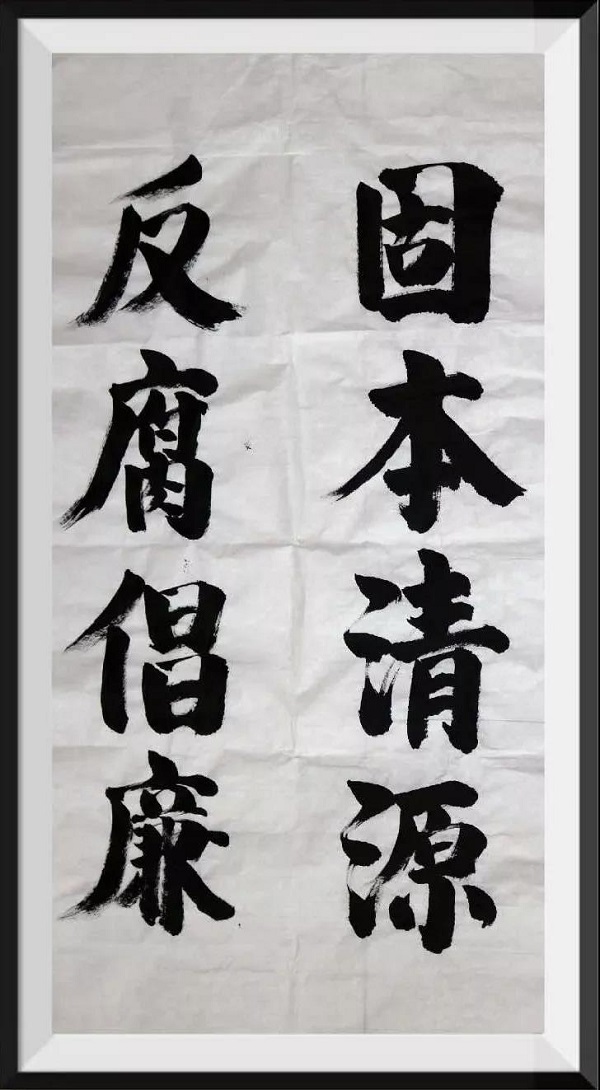 固本清源
反腐倡廉